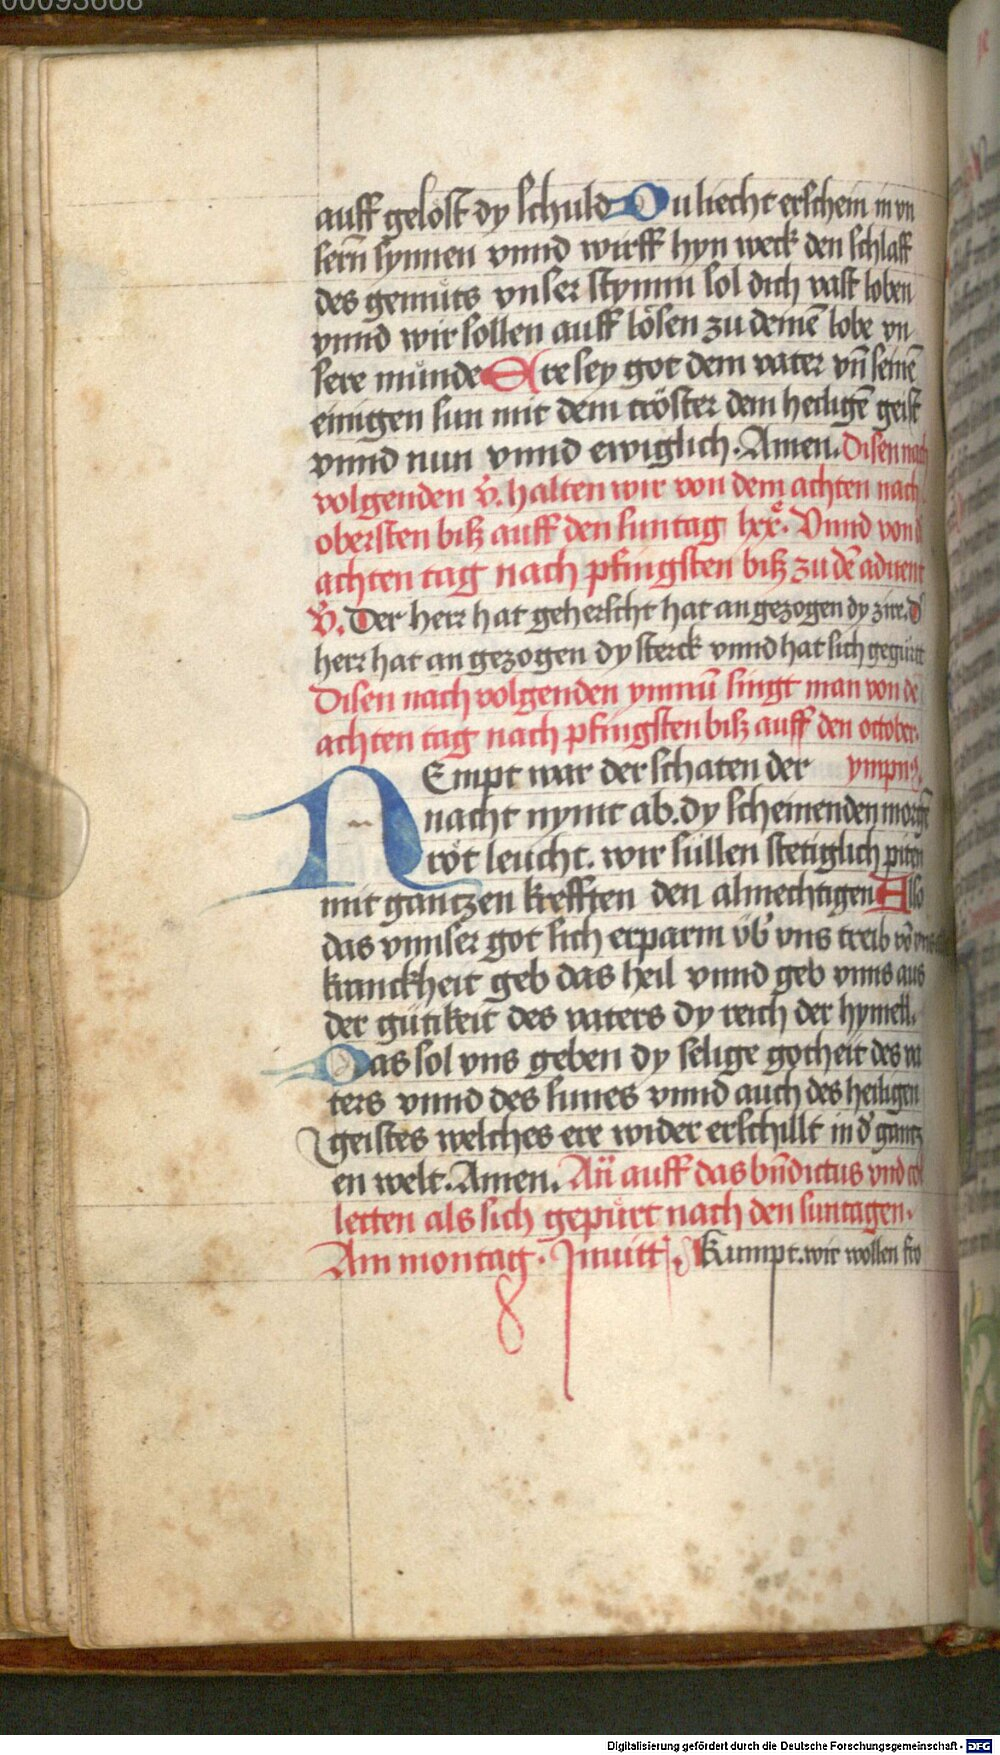 00093668
auff gelöst dy schuld Du liecht erschein in vn
sern̄ synnen vnnd wirff hyn weck den schlaff
des gemüts vnser stymm sol dich vast loben
vnnd wir sollen auff lösen zu deinē lobe vn
sere münde Ere sey got dem vater vn̄ seinē
einigen sun mit dem tröster dem heiligē geist
vnnd nun vnnd ewiglich. Amen. Disen nach
volgenden v̄. halten wir von dem achten nach
obersten biß auff den suntag lxx͛. Vnnd von d
achten tag nach pfingsten biß zu dē aduent
V̄. Der herr hat geherscht hat an gezogen dy zir. d͛
herr hat an gezogen dy sterck vnnd hat sich gegürt
Disen nach volgenden ymnū singt man von dē
achten tag nach pfingsten biß auff den october.
NEmpt war der schaten der ympn͛.
nacht nymt ab. dy scheinenden morgē
röt leucht. wir süllen stetiglich piten
mit gantzen krefften den almechtigen Also
das vnnser got sich erparm üb͛ vns treib vō vns
kranckheit geb das heil vnnd geb vnns aus
der gütikeit des vaters dy reich der hymell.
Das sol vns geben dy selige gotheit des va
ters vnnd des sunes vnnd auch des heiligen
geistes welches ere wider erschillt in d͛ gantz
en welt. Amen. Añ auff das bn̄dictus vnd col
letten als sich gepürt nach den suntagen.
Am montag. Inuitt Kumpt. wir wollen fro
Digitalisierung gefördert durch die Deutsche Forschungsgemeinschaft - DFG